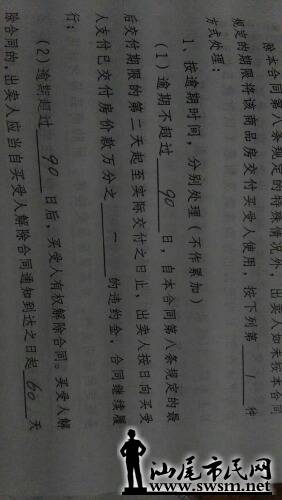 除本合同第八条规定的特殊情况外，出卖人如未按本合同
规定的期限将该商品房交付买受人使用，按下列第 1 种
方式处理：
1、按逾期时间，分别处理（不作累加）
（1）逾期不超过 90 日，自本合同第八条规定的最
后交付期限的第二天起至实际交付之日止，出卖人按日向买受
人支付已交付房价款万分之 一 的违约金，合同继续履
行；
（2）逾期超过 90 日后，买受人有权解除合同。买受人解
除合同的，出卖人应当自买受人解除合同通知到达之日起 60 天
汕尾市民网
www.swsm.net